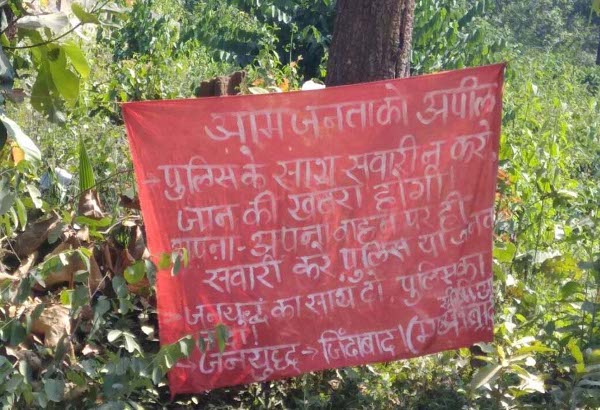 आम जनता को अपील
→ पुलिस के साथ सवारी न करे
जान की खतरा होगी
अपना-अपना वाहन पर ही
सवारी करे, पुलिस या
→ जनयुद्ध का साथ दो पुलिस का
→ जनयुद्ध → जिंदाबाद।